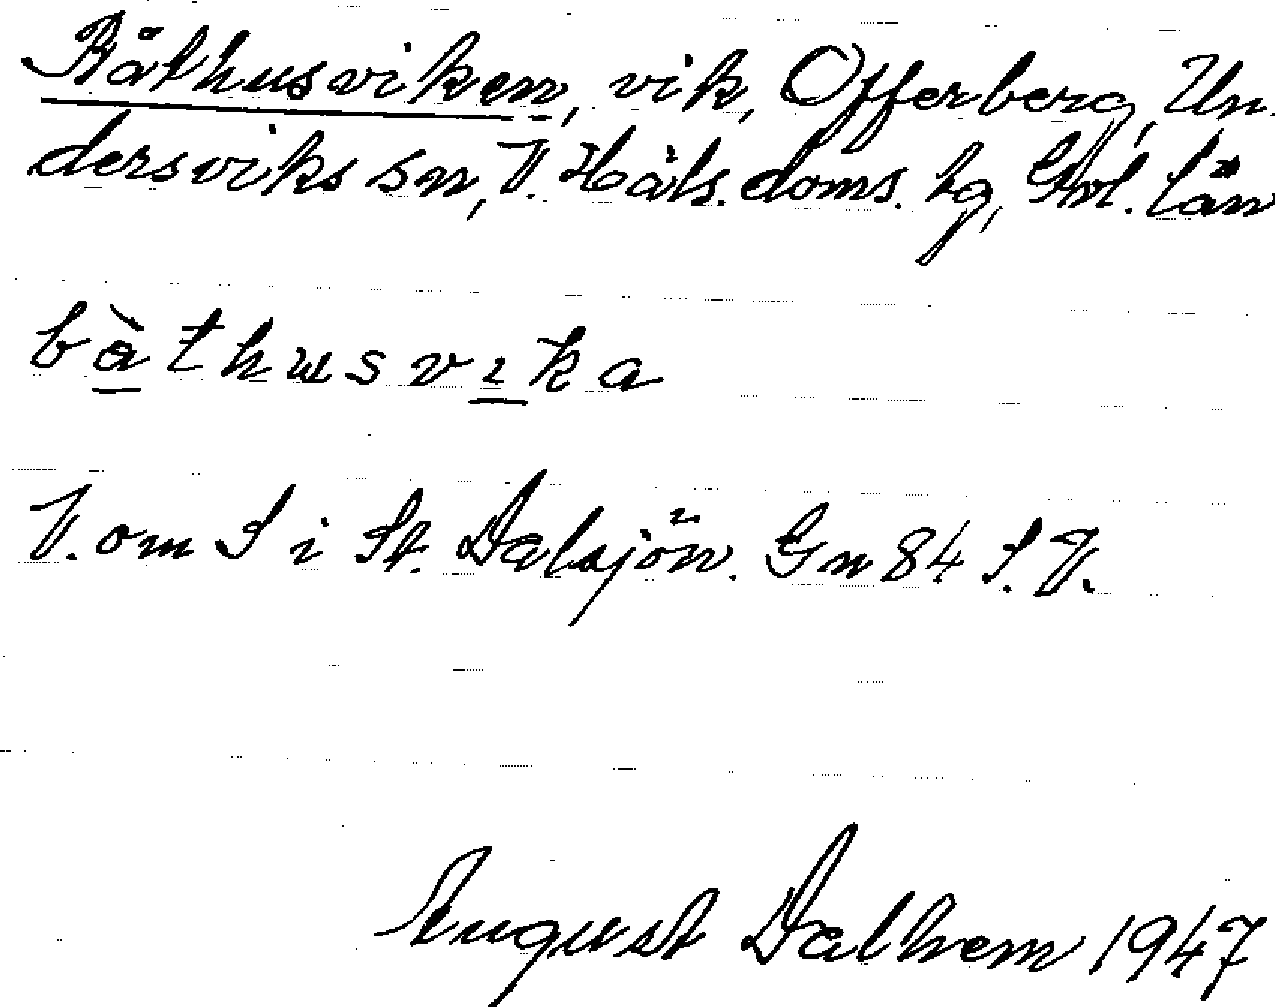 Båthusviken, vik, Offerberg, Un-
dersviks sn, V. Häls. doms. hg, Gvl. län
bàthusvıka
V. om S i St. Dalsjön. Gn 84 S.V.
August Dalhem 1947